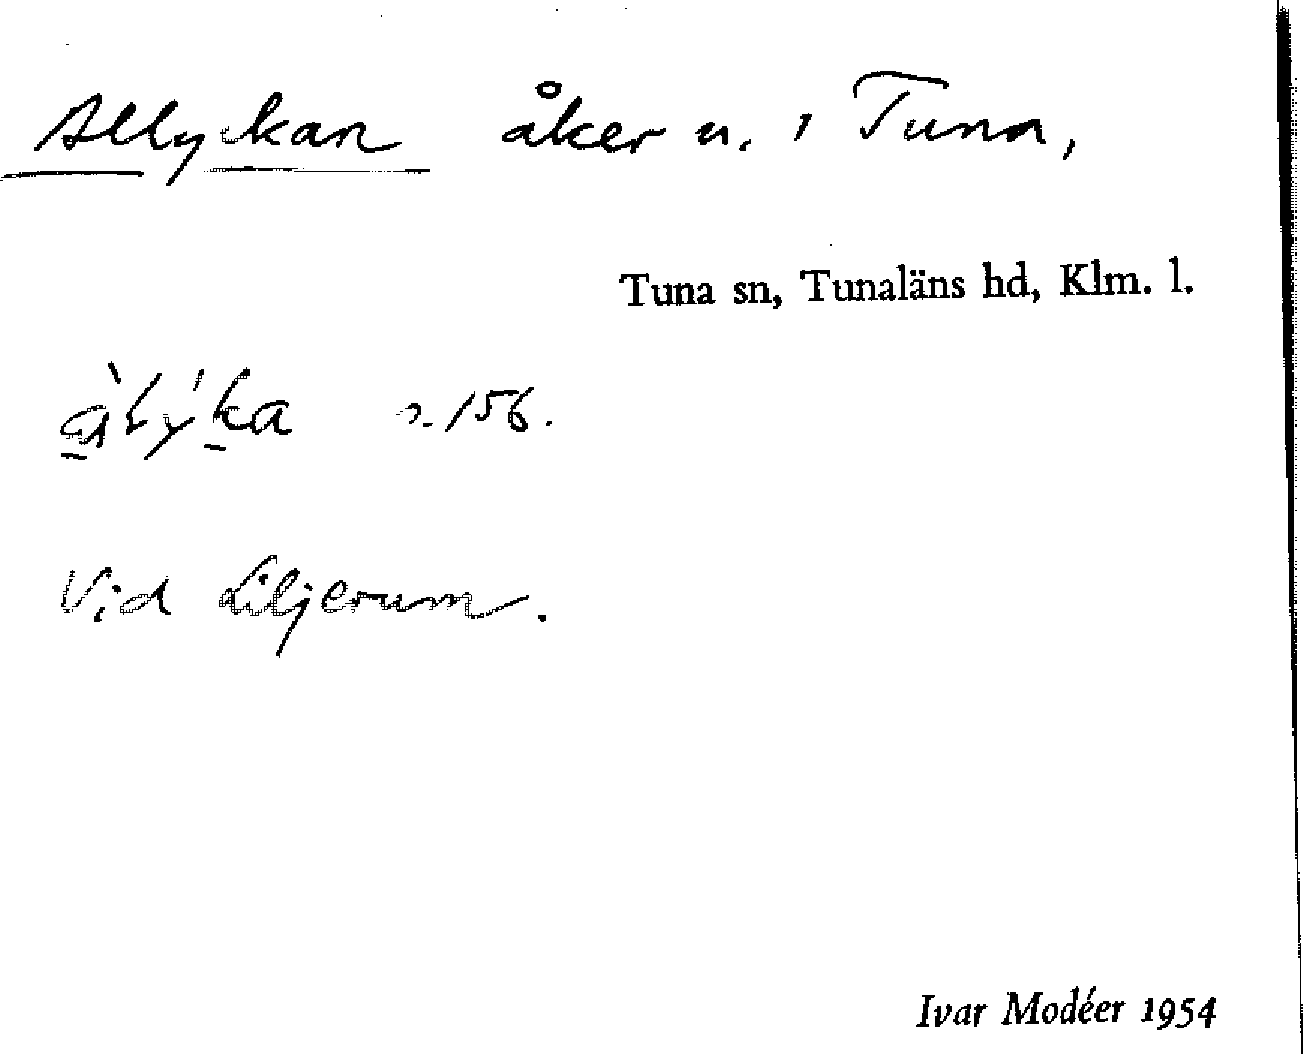 Allyckan åker n. 1 Tuna,
Tuna sn, Tunaläns hd, Klm. l.
s. 156.
Vid Liljerum.
Ivar Modéer 1954